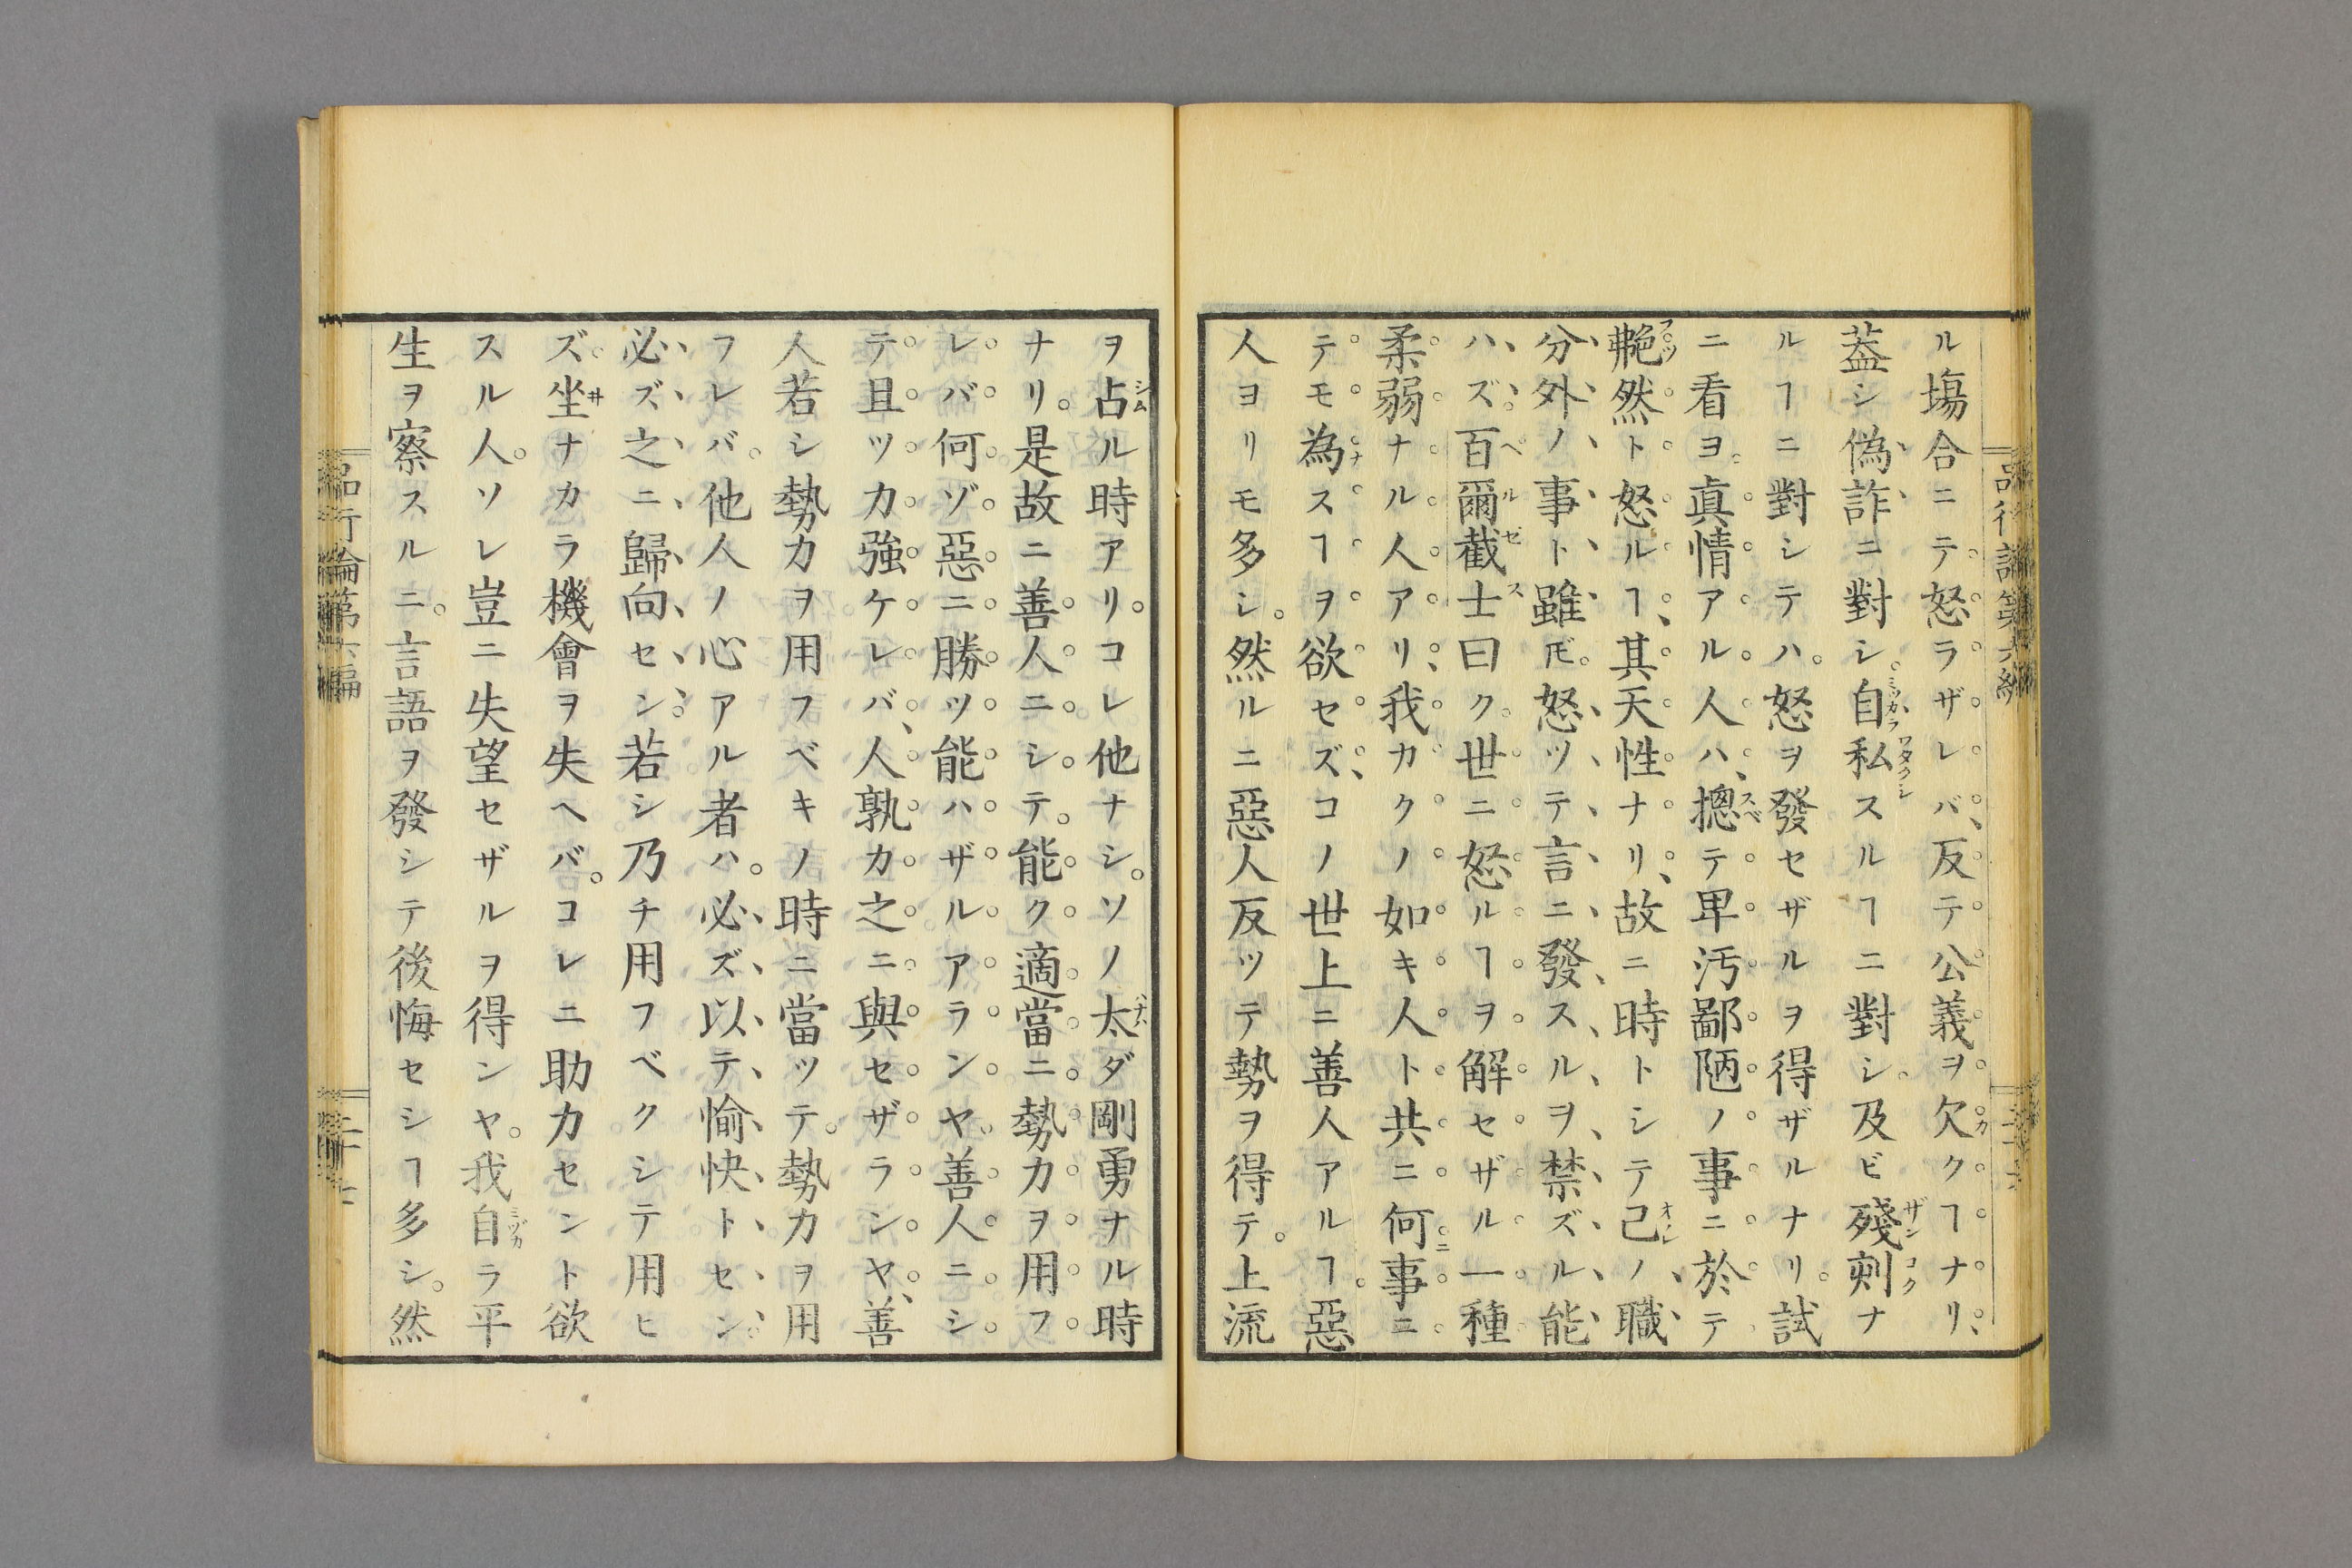 ル塲合ニテ怒ラザレバ、反テ公義ヲ欠クヿナリ、
蓋シ偽詐ニ對シ。自私スルヿニ對シ。及ビ殘刻ナ
ルヿニ對シテハ。怒ヲ發セザルヲ得ザルナリ。試
ニ看ヨ眞情アル人ハ、摠テ卑汚鄙陋ノ事ニ於テ
艴然ト怒ルヿ、其天性ナリ、故ニ時トシテ己ノ職
分外ノ事ト雖𪜈。怒ツテ言ニ發スルヲ禁ズル能
ハズ。百爾截士曰ク世ニ怒ルヿヲ解セザル一種
柔弱ナル人アリ、我カクノ如キ人ト共ニ何事ニ
テモ為スヿヲ欲セズ、コノ世上ニ善人アルヿ。惡
人ヨリモ多シ。然ルニ惡人反ツテ勢ヲ得テ。上流
品行論第六編
ヲ占ル時アリ。コレ他ナシ。ソノ太ダ剛勇ナル時
ナリ。是故ニ善人ニシテ。能ク適當ニ勢力ヲ用フ
レバ何ゾ惡ニ勝ツ能ハザルアランヤ、善人ニシ
テ且ツ力強ケレバ、人孰カ之ニ與セザランヤ、善
人若シ勢力ヲ用フベキノ時ニ當ツテ。勢力ヲ用
フレバ。他人ノ心アル者ハ。必ズ以テ愉快トセン。
必ズ之ニ歸向セン。若シ乃チ用フベクシテ用ヒ
ズ。坐ナカラ機會ヲ失ヘバ。コレニ助力セント欲
スル人。ソレ豈ニ失望セザルヲ得ンヤ。我自ラ平
生ヲ察スルニ。言語ヲ發シテ後悔セシヿ多シ。然
品行論第六編